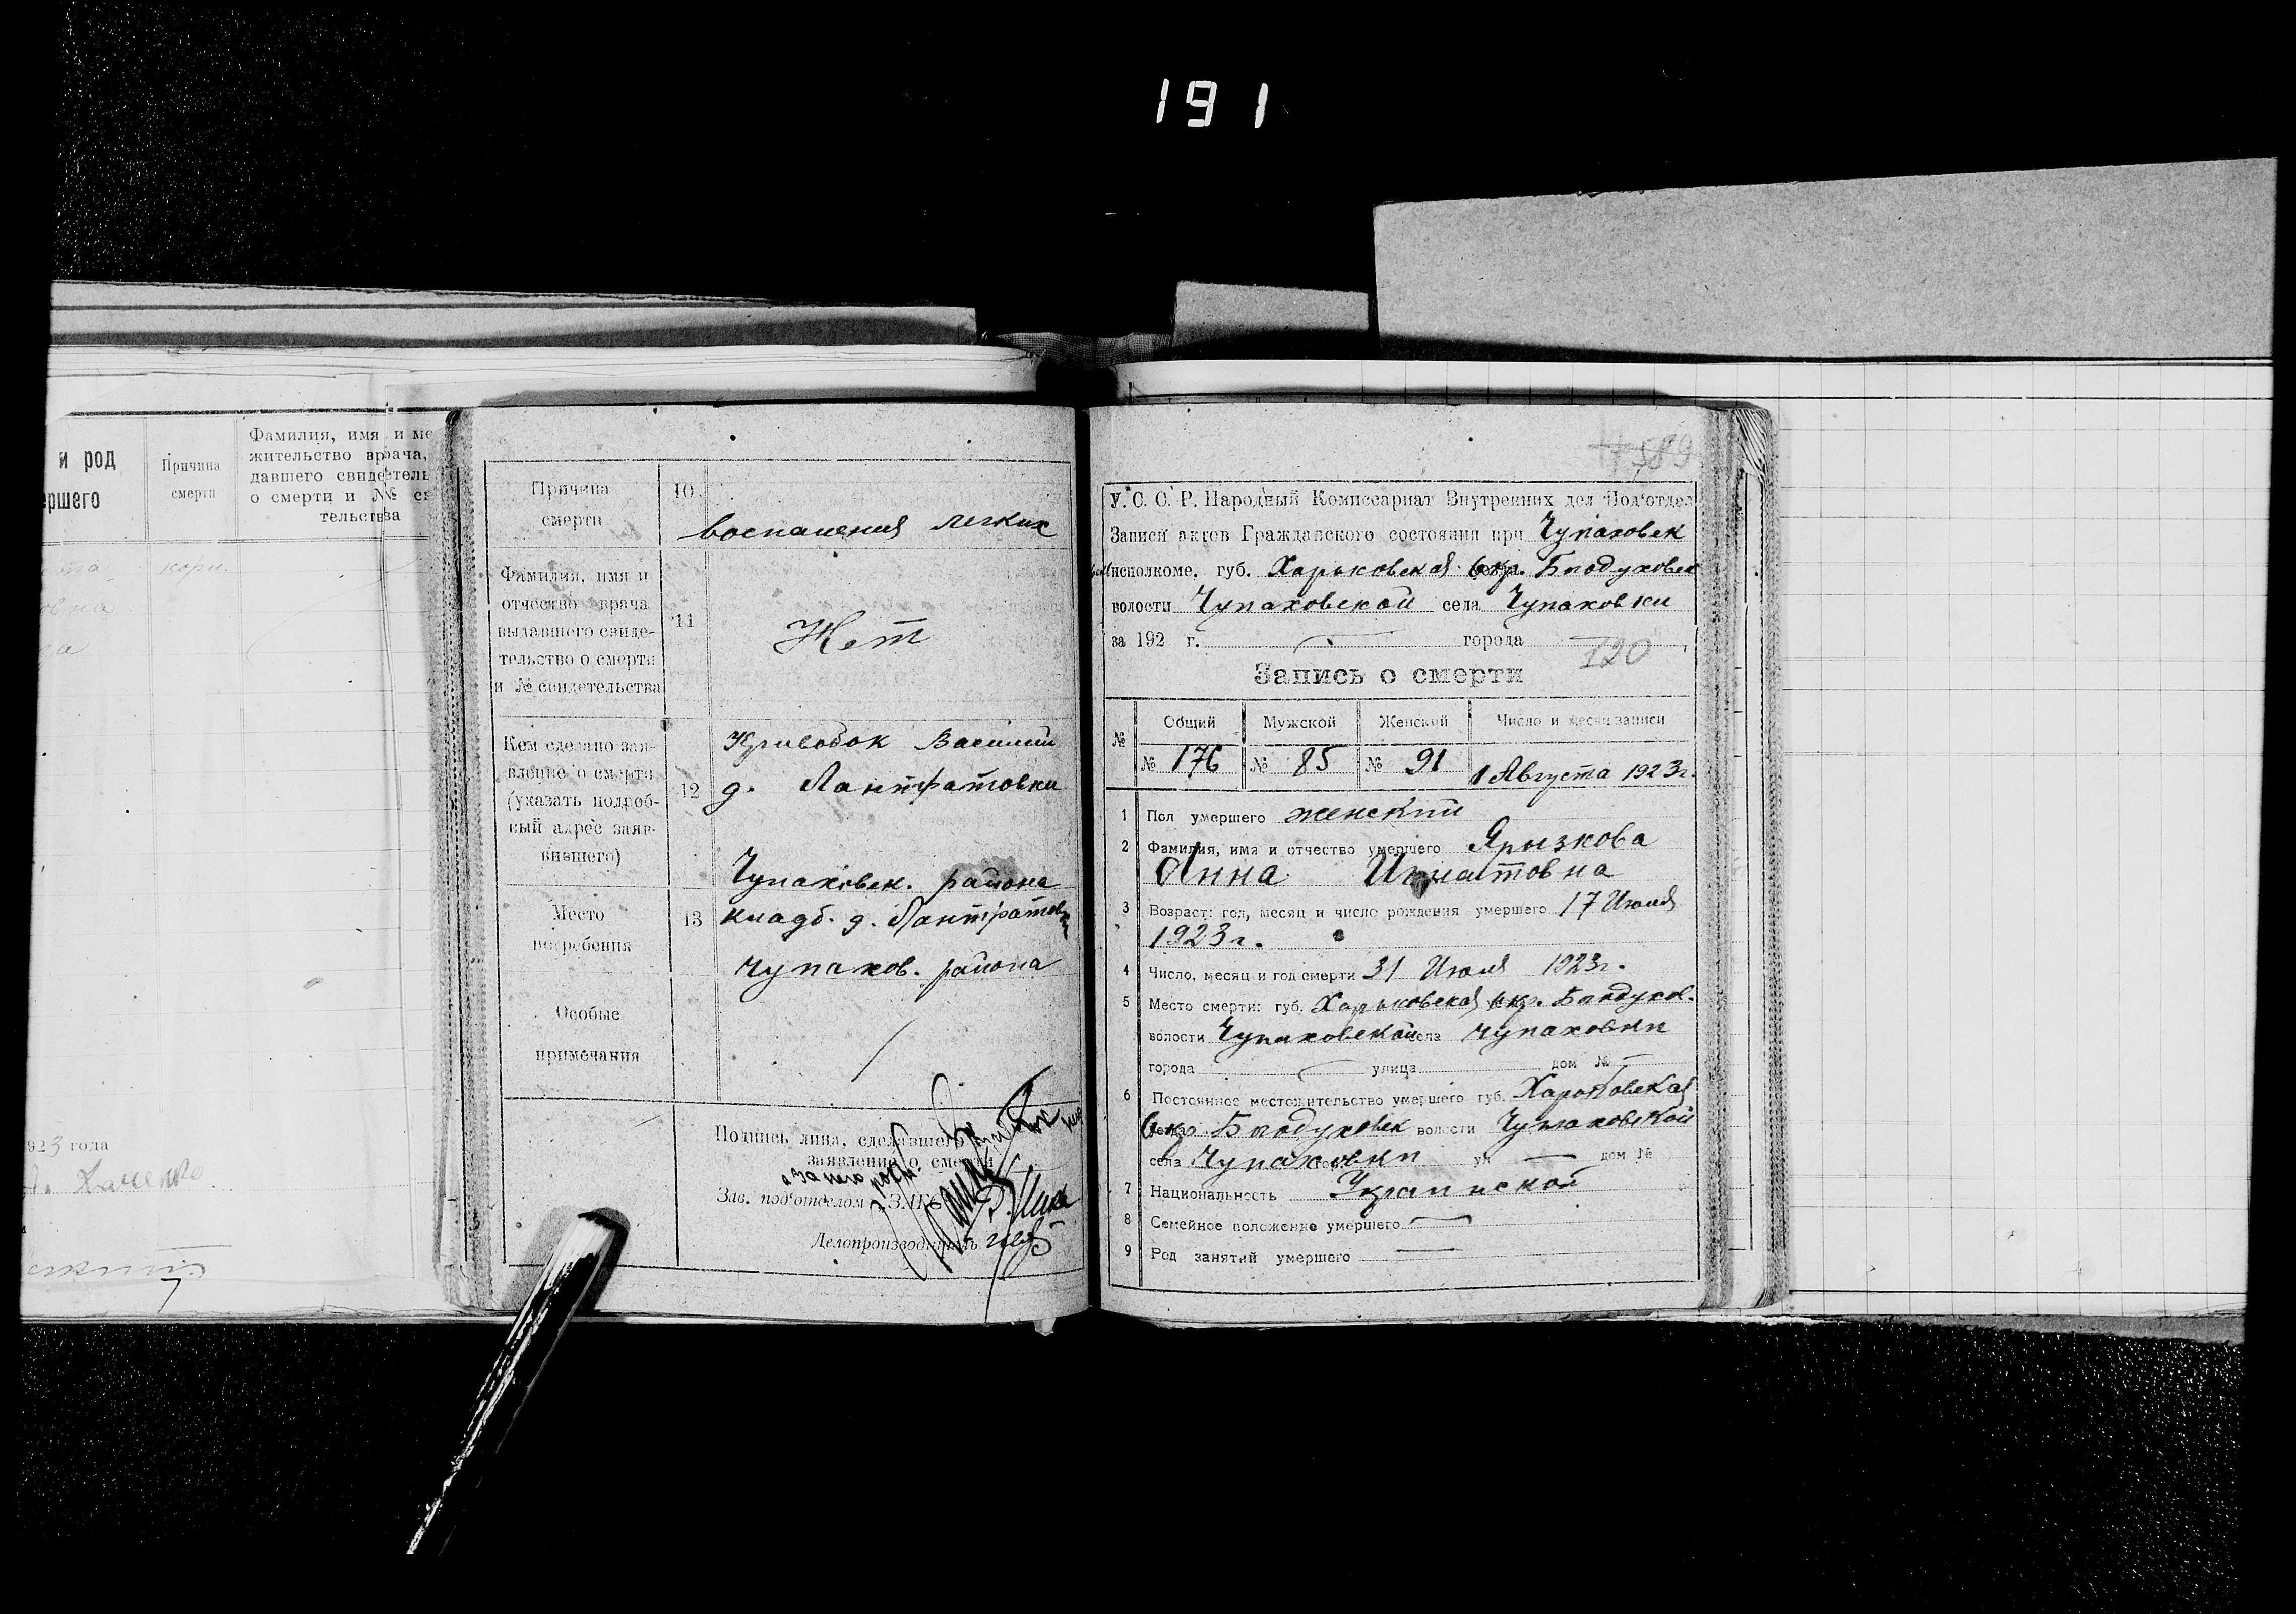 191
и род
ершего
Причина
смерти
Фамилия, имя и ме
жительство врача,
давшего свидетель
о смерти и №
тельства
кори.
овна
923 года
Причина
смерти
10
воспаления легких
Фамилия, имя и
отчество врача
выдавшего свиде-
тельство о смерти
и № свидетельства
11
Нет
Кем сделано зая-
вление о смерти
(указать подроб-
ный адрес заяв-
вившего)
12
Кривобок Василий
д. Лантратовки
Чупаховск. района
Место
погребения
13
кладб. д. Лантратовк
чупахов. района
Особые
примечания
Подпись лица, сделавшего
заявление о смерти
Зав. под'отделом ЗАГС
Делопроизводитель
589
У. С. С. Р. Народный Комиссариат Внутренних дел Под'отдел
Записи актов Гражданского состояния при Чупаховск
исполкоме. губ. Харьковская окр. Богодуховск
волости Чупаховской села Чупаховки
за 192 г. города
120
Запись о смерти
№
Общий
Мужской
Женский
Число и месяц записи
№ 176
№ 85
№ 91
1 Августа 1923г.
1 Пол умершего женский
2 Фамилия, имя и отчество умершего Ярызкова
Анна Игнатовна
3 Возраст: год, месяц и число рождения умершего 17 Июля
1923г.
4 Число, месяц и год смерти 31 Июля 1923г.
5 Место смерти: губ. Харьковская окр. Богодухов.
волости Чупаховской села Чупаховки
города улица дом №
6 Постоянное местожительство умершего губ. Харьковская
окр. Богодуховск волости Чупаховской
села Чупаховки ул дом №
7 Национальность Украинской
8 Семейное положение умершего
9 Род занятий умершего